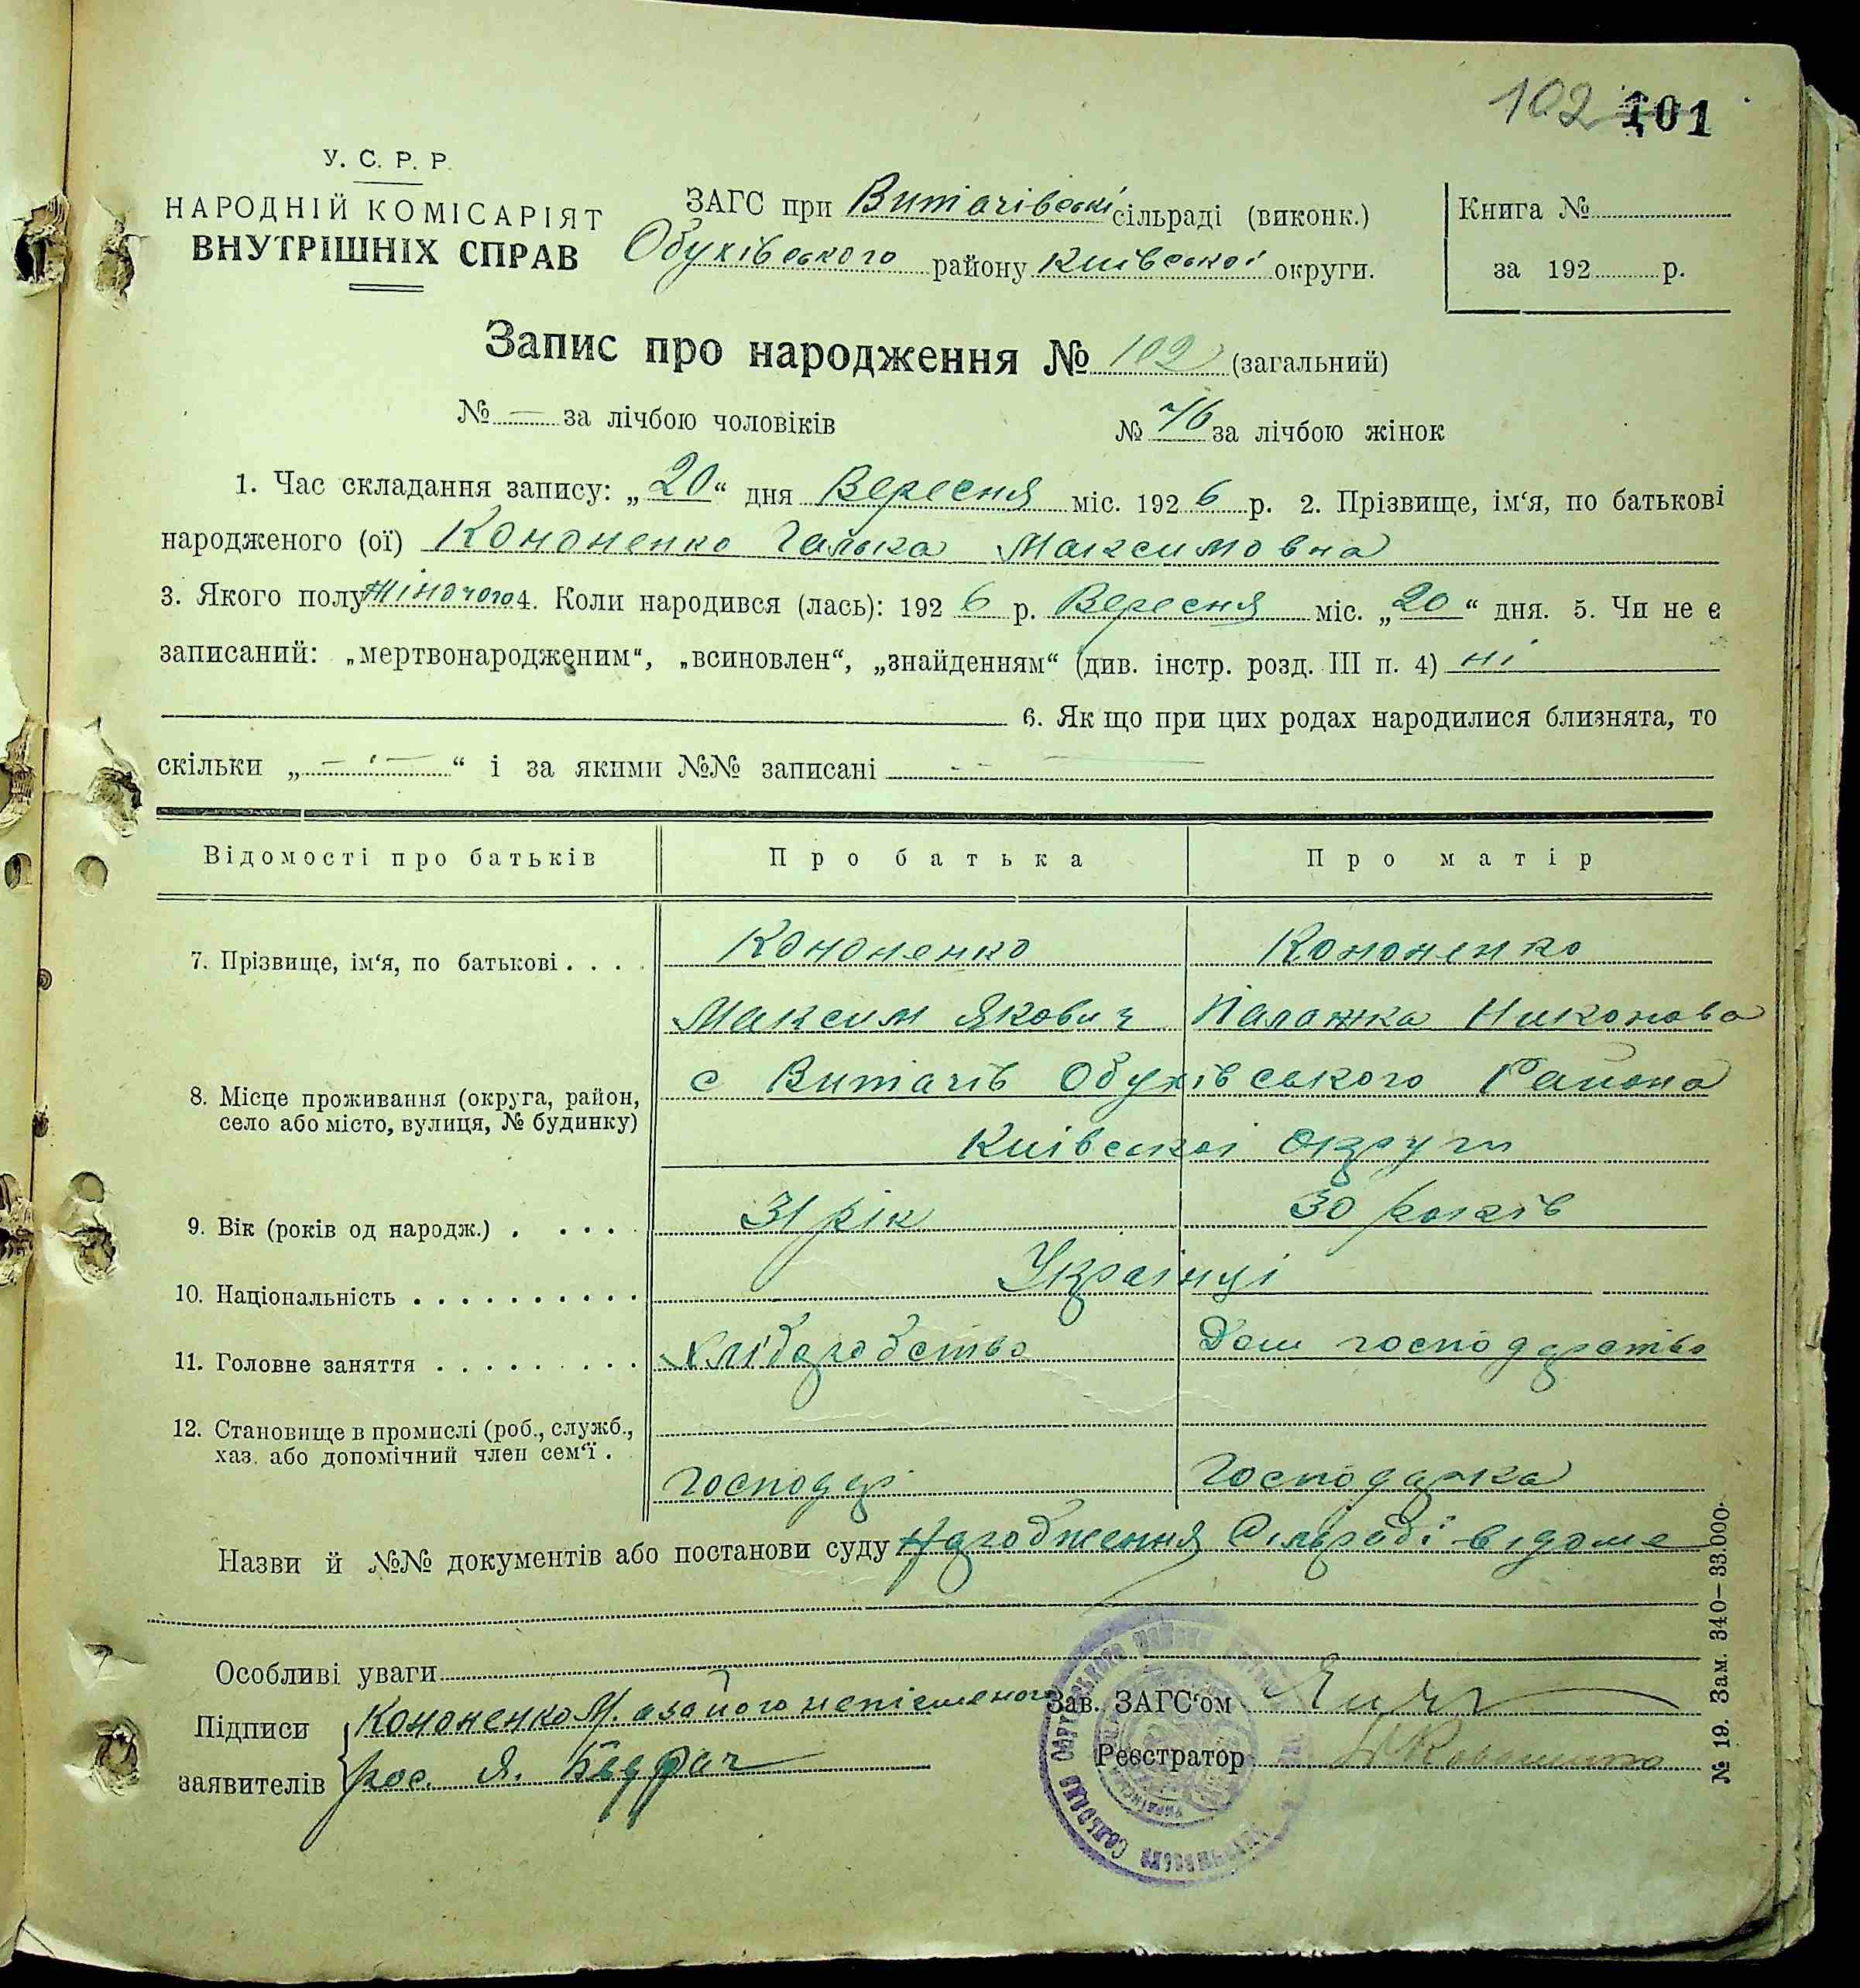 102 101
У. С. Р. Р.
НАРОДНІЙ КОМІСАРІЯТ
ВНУТРІШНІХ СПРАВ
ЗАГС при Витачівські сільраді (виконк.)
Обухівського району Київської округи.
Книга №
за 192 р.
Запис про народження № 102 (загальний)
№ — за лічбою чоловіків № 46 за лічбою жінок
1. Час складання запису: „20“ дня Вересня міс. 1926 р. 2. Прізвище, ім‘я, по батькові
народженого (ої) Кононенко Галька Максимовна
3. Якого полу Жіночого 4. Коли народився (лась): 1926 р. Вересня міс. „20“ дня. 5. Чи не є
записаний: „мертвонародженим“, „всиновлен“, „знайденням“ (див. інстр. розд. III п. 4) ні
6. Як що при цих родах народилися близнята, то
скільки „ — “ і за якими №№ записані —
Відомості про батьків Про батька Про матір
7. Прізвище, ім‘я, по батькові . . . . Кононенко Кононенко
Максим Якович Палажка Никонова
8. Місце проживання (округа, район,
село або місто, вулиця, № будинку)
с Витачів Обухівського Района
Київскої округи
9. Вік (років од народж.) . . . . . 31 рік 30 років
10. Національність . . . . . . . . . . Українці
11. Головне заняття . . . . . . . . . Хліборобство Дом господарство
12. Становище в промислі (роб., служб.,
хаз. або допомічний член сем‘ї .
господар Господарка
Назви й №№ документів або постанови суду Народження Сільраді відоме
Особливі уваги
Підписи Кононенко М. а за його неписьменого
заявителів рос. Я.
Зав. ЗАГС‘ом
Реєстратор
№ 19. Зам. 340—33.000.